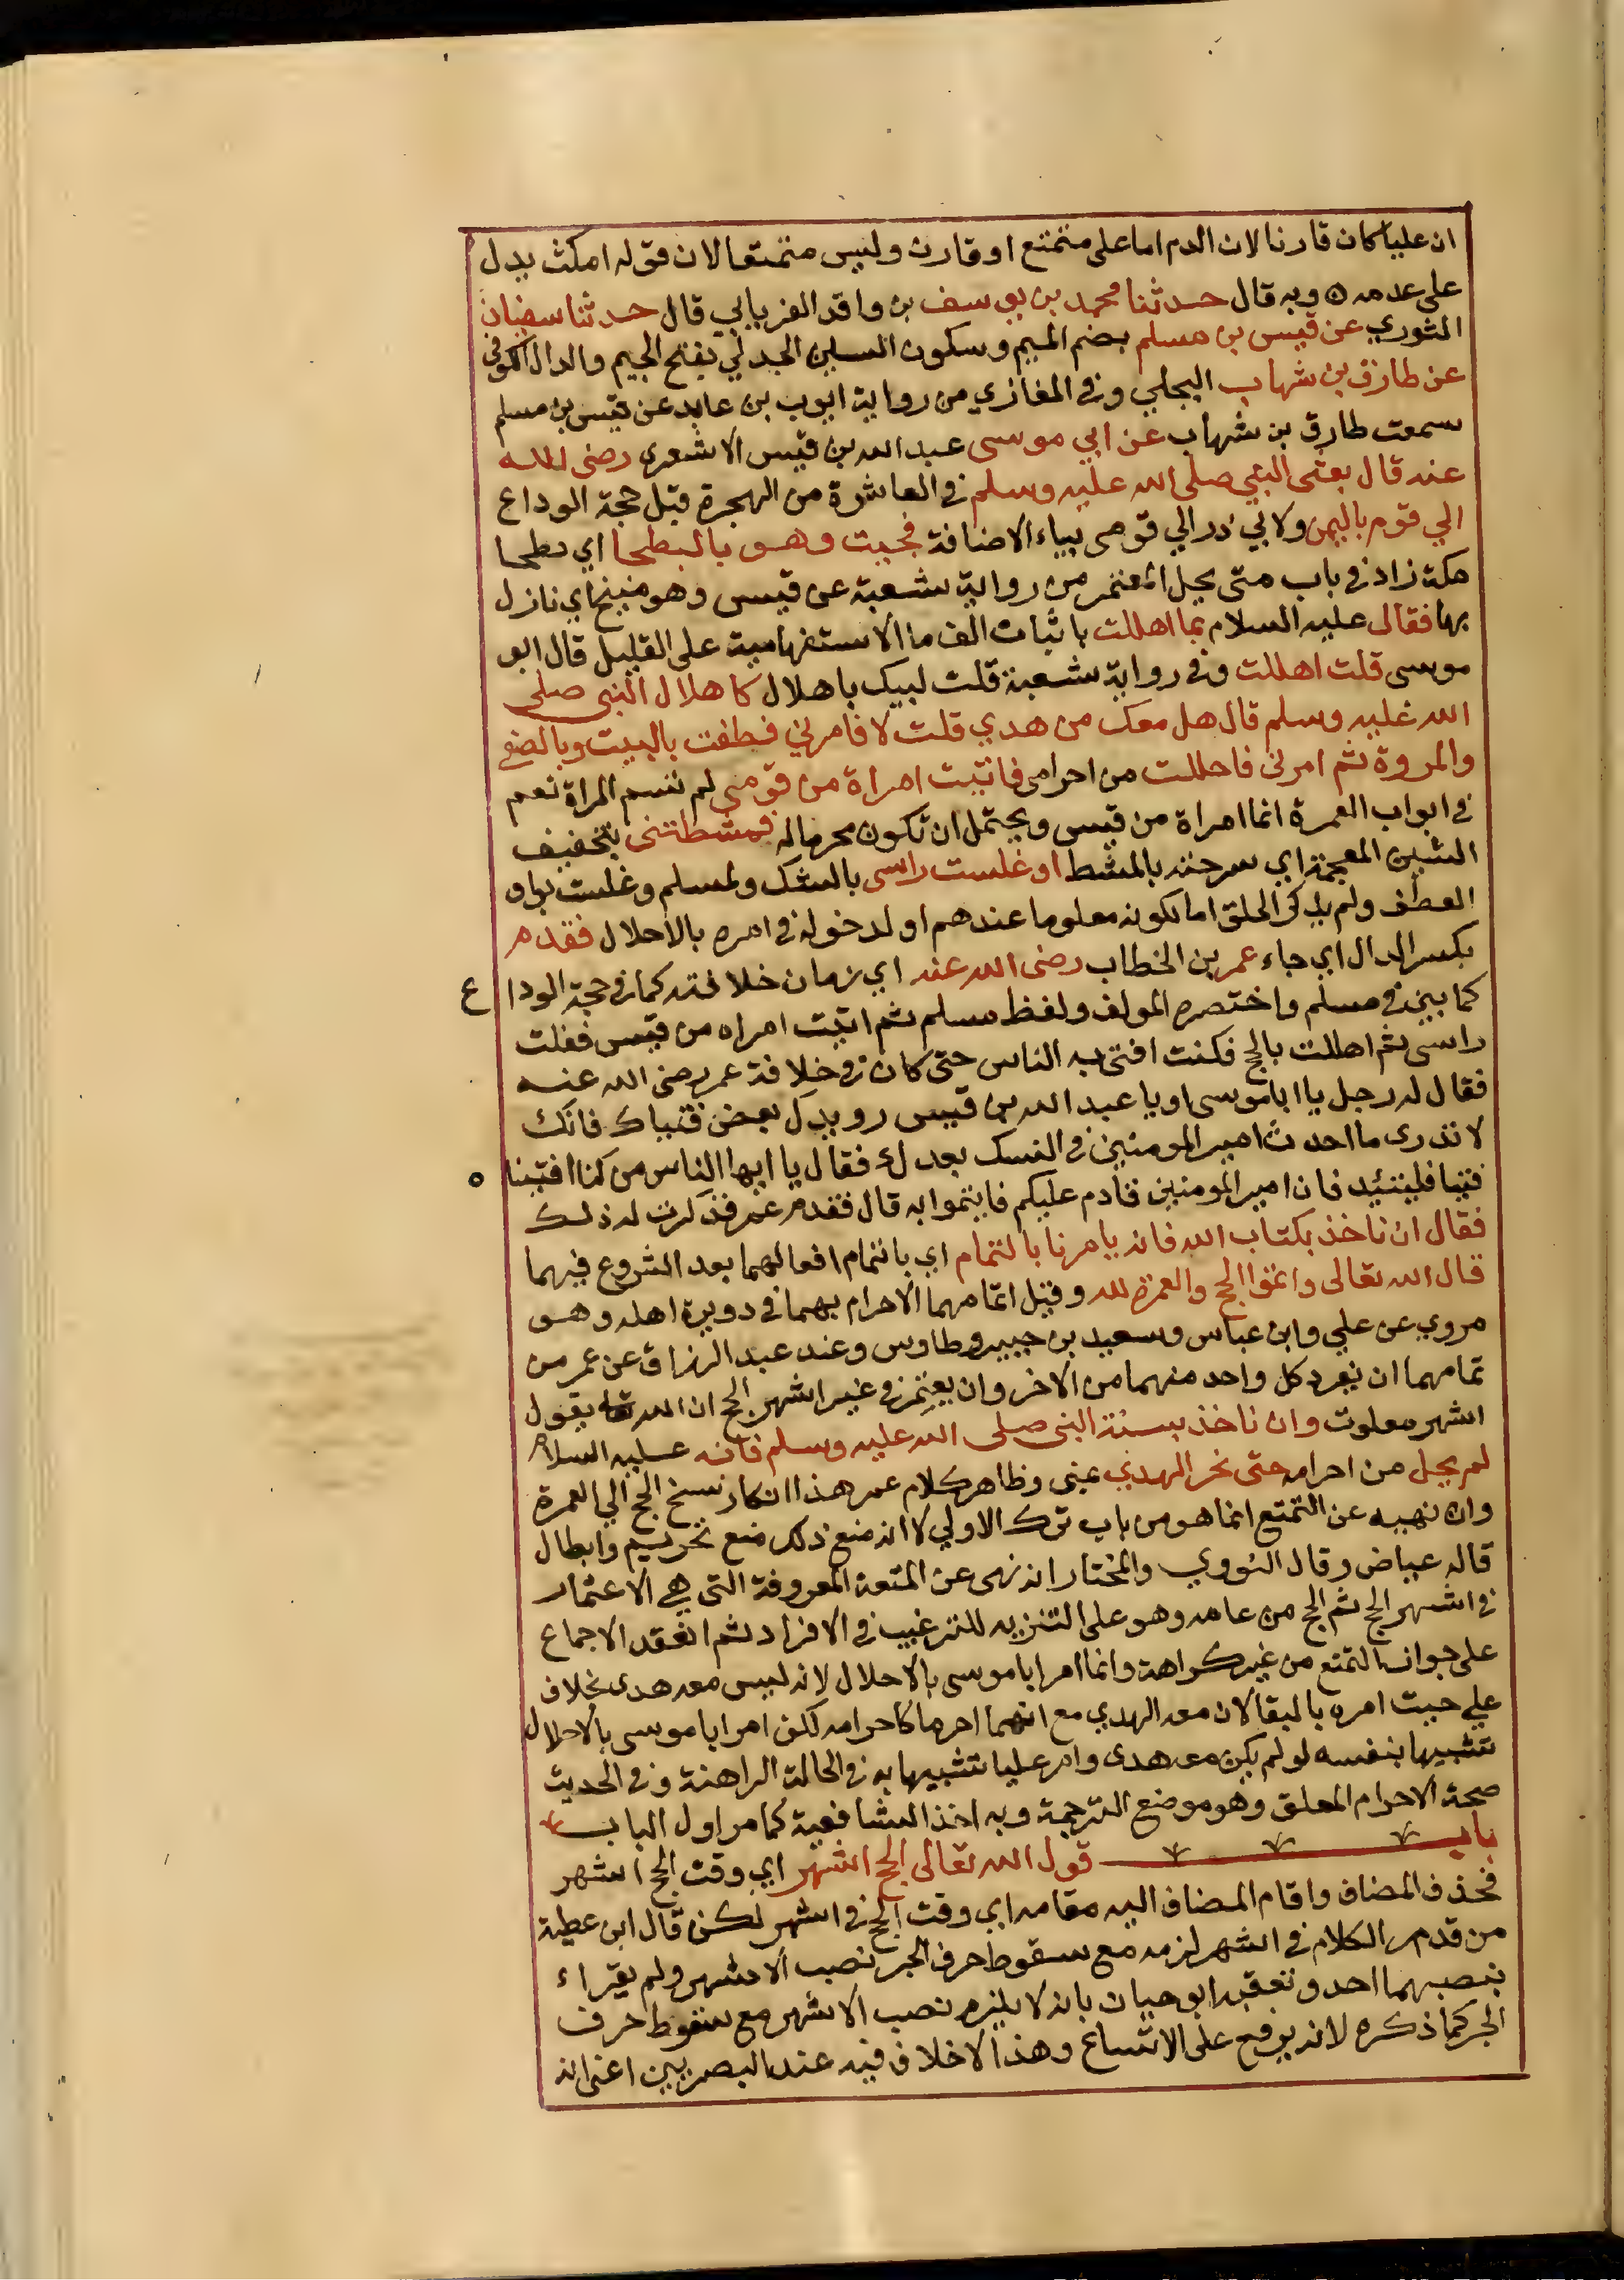 ان عليا كان قارنا لان الدم اما على متمتع او قارن وليس متمتعا لان قوله امكث يدل
على عدمه ه وبه قال حدثنا محمد بن يوسف بن واقد الفريابي قال حدثنا سفيان
الثوري عن قيس بن مسلم بضم الميم وسكون السين الجدلي بفتح الجيم والدال الكوفي
عن طارق بن شهاب البجلي وفي المغازي من رواية ايوب بن عايد عن قيس بن مسلم
سمعت طارق بن شهاب عن ابي موسى عبد الله بن قيس الاشعري رضى الله
عنه قال بعثى النبي صلى الله عليه وسلم في العاشرة من الهجرة قبل حجة الوداع
الي قوم باليمن ولابي ذر الي قومى بياء الاضافة فجيت وهو بالبطحا اي بطحا
مكة زاد في باب متى يحل المعتمر من رواية شعبة عن قيس وهو منيخ اي نازل
بها فقال عليه السلام بما اهللت باثبات الف ما الاستفهامية على القليل قال ابو
موسى قلت اهللت وفي رواية شعبة قلت لبيك باهلال كاهلال النبى صلى
الله عليه وسلم قال هل معك من هدي قلت لا فامرني فطفت بالبيت وبالصفى
والمروة ثم امرنى فاحللت من احرامى فاتيت امراة من قومى لم تسم المراة نعم
في ابواب العمرة انها امراة من قيس ويحتمل ان تكون محرما له فمشطتنى بتخفيف
الشين المعجمة اي سرحته بالمشط او غلست راسى بالشك ولمسلم وغلست بواو
العطف ولم يذكر الحلق اما لكونه معلوما عندهم او لدخوله في امره بالاحلال فقدم
بكسر الدال اي جاء عمر بن الخطاب رضى الله عنه اي زمان خلافته كما في حجة الوداع
كما بين في مسلم واختصره المولف ولفظ مسلم ثم اتيت امراه من قيس ففلت
راسى ثم اهللت بالحج فكنت افتى به الناس حتى كان في خلافة عمر رضى الله عنه
فقال له رجل يا ابا موسى او يا عبد الله بن قيس رويدك بعض فتياك فانك
لا تدرى ما احدث امير المومنين في النسك بعدك فقال يا ايها الناس من كنا افتينا ه
فتيا فليتئد فان امير المومنين قادم عليكم فايتموا به قال فقدم عمر فذكرت له ذلك
فقال ان ناخذ بكتاب الله فانه يامرنا بالتمام اي باتمام افعالهما بعد الشروع فيهما
قال الله تعالى واتموا الحج والعمرة لله وقيل اتمامهما الاحرام بهما في دويرة اهله وهو
مروي عن علي وابن عباس وسعيد بن جبير وطاوس وعند عبد الرزاق عن عمر من
تمامهما ان يفرد كل واحد منهما من الاخر وان يعتمر في غير اشهر الحج ان الله تعا يقول
اشهر معلوت وان ناخذ بسنة النبى صلى الله عليه وسلم فانه عليه السلام
لم يحل من احرامه حتى نحر الهدي عنى وظاهر كلام عمر هذا انكار نسخ الحج الي العمرة
وان نهيه عن التمتع انما هو من باب ترك الاولي لا انه منع ذلك منع تحريم وابطال
قاله عياض وقال النووي والمختار انه نهى عن المتعة المعروفة التي هي الاعتمار
في اشهر الحج ثم الحج من عامه وهو على التنزيه للترغيب في الافراد ثم انعقد الاجماع
على جواز التمتع من غير كراهة وانما امر ابا موسى بالاحلال لانه ليس معه هدى بخلاف
علي حيت امره بالبقا لان معه الهدي مع انهما احرما كاحرامه لكن امر ابا موسى بالاحلال
تشبيها بنفسه لو لم يكن معه هدى وامر عليا تشبيها به في الحالة الراهنة وفي الحديث
صحة الاحرام المعلق وهو موضع الترجمة وبه اخذ الشافعية كما مر اول الباب
باب قول الله تعالى الحج اشهر اي وقت الحج اشهر
فحذف المضاف واقام المضاف اليه مقامه اي وقت الحج في اشهر لكن قال ابن عطية
من قدم الكلام في اشهر لزمه مع سقوط حرف الجر نصب الاشهر ولم يقراء
بنصبهما احد وتعقبه ابو حيان بانه لا يلزم نصب الاشهر مع سقوط حرف
الجر كما ذكره لانه يرفع على الاتساع وهذا لا خلاف فيه عند البصريين اعنى انه